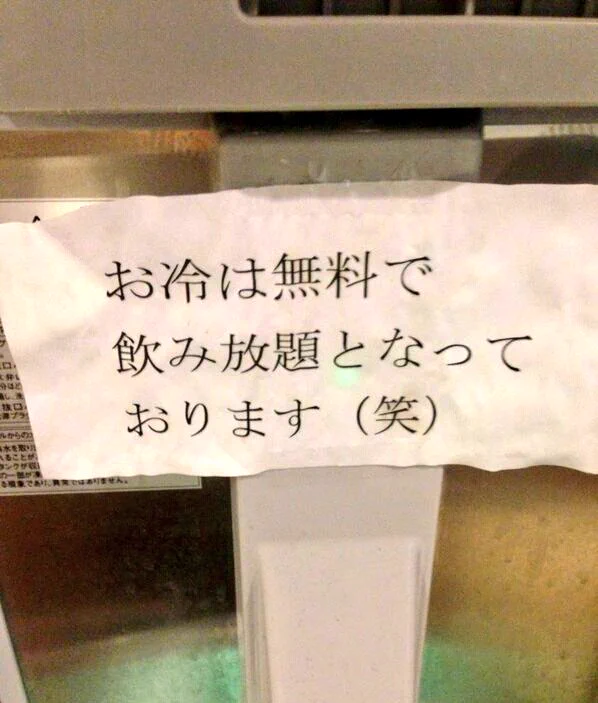 お冷は無料で
飲み放題となって
おります（笑）